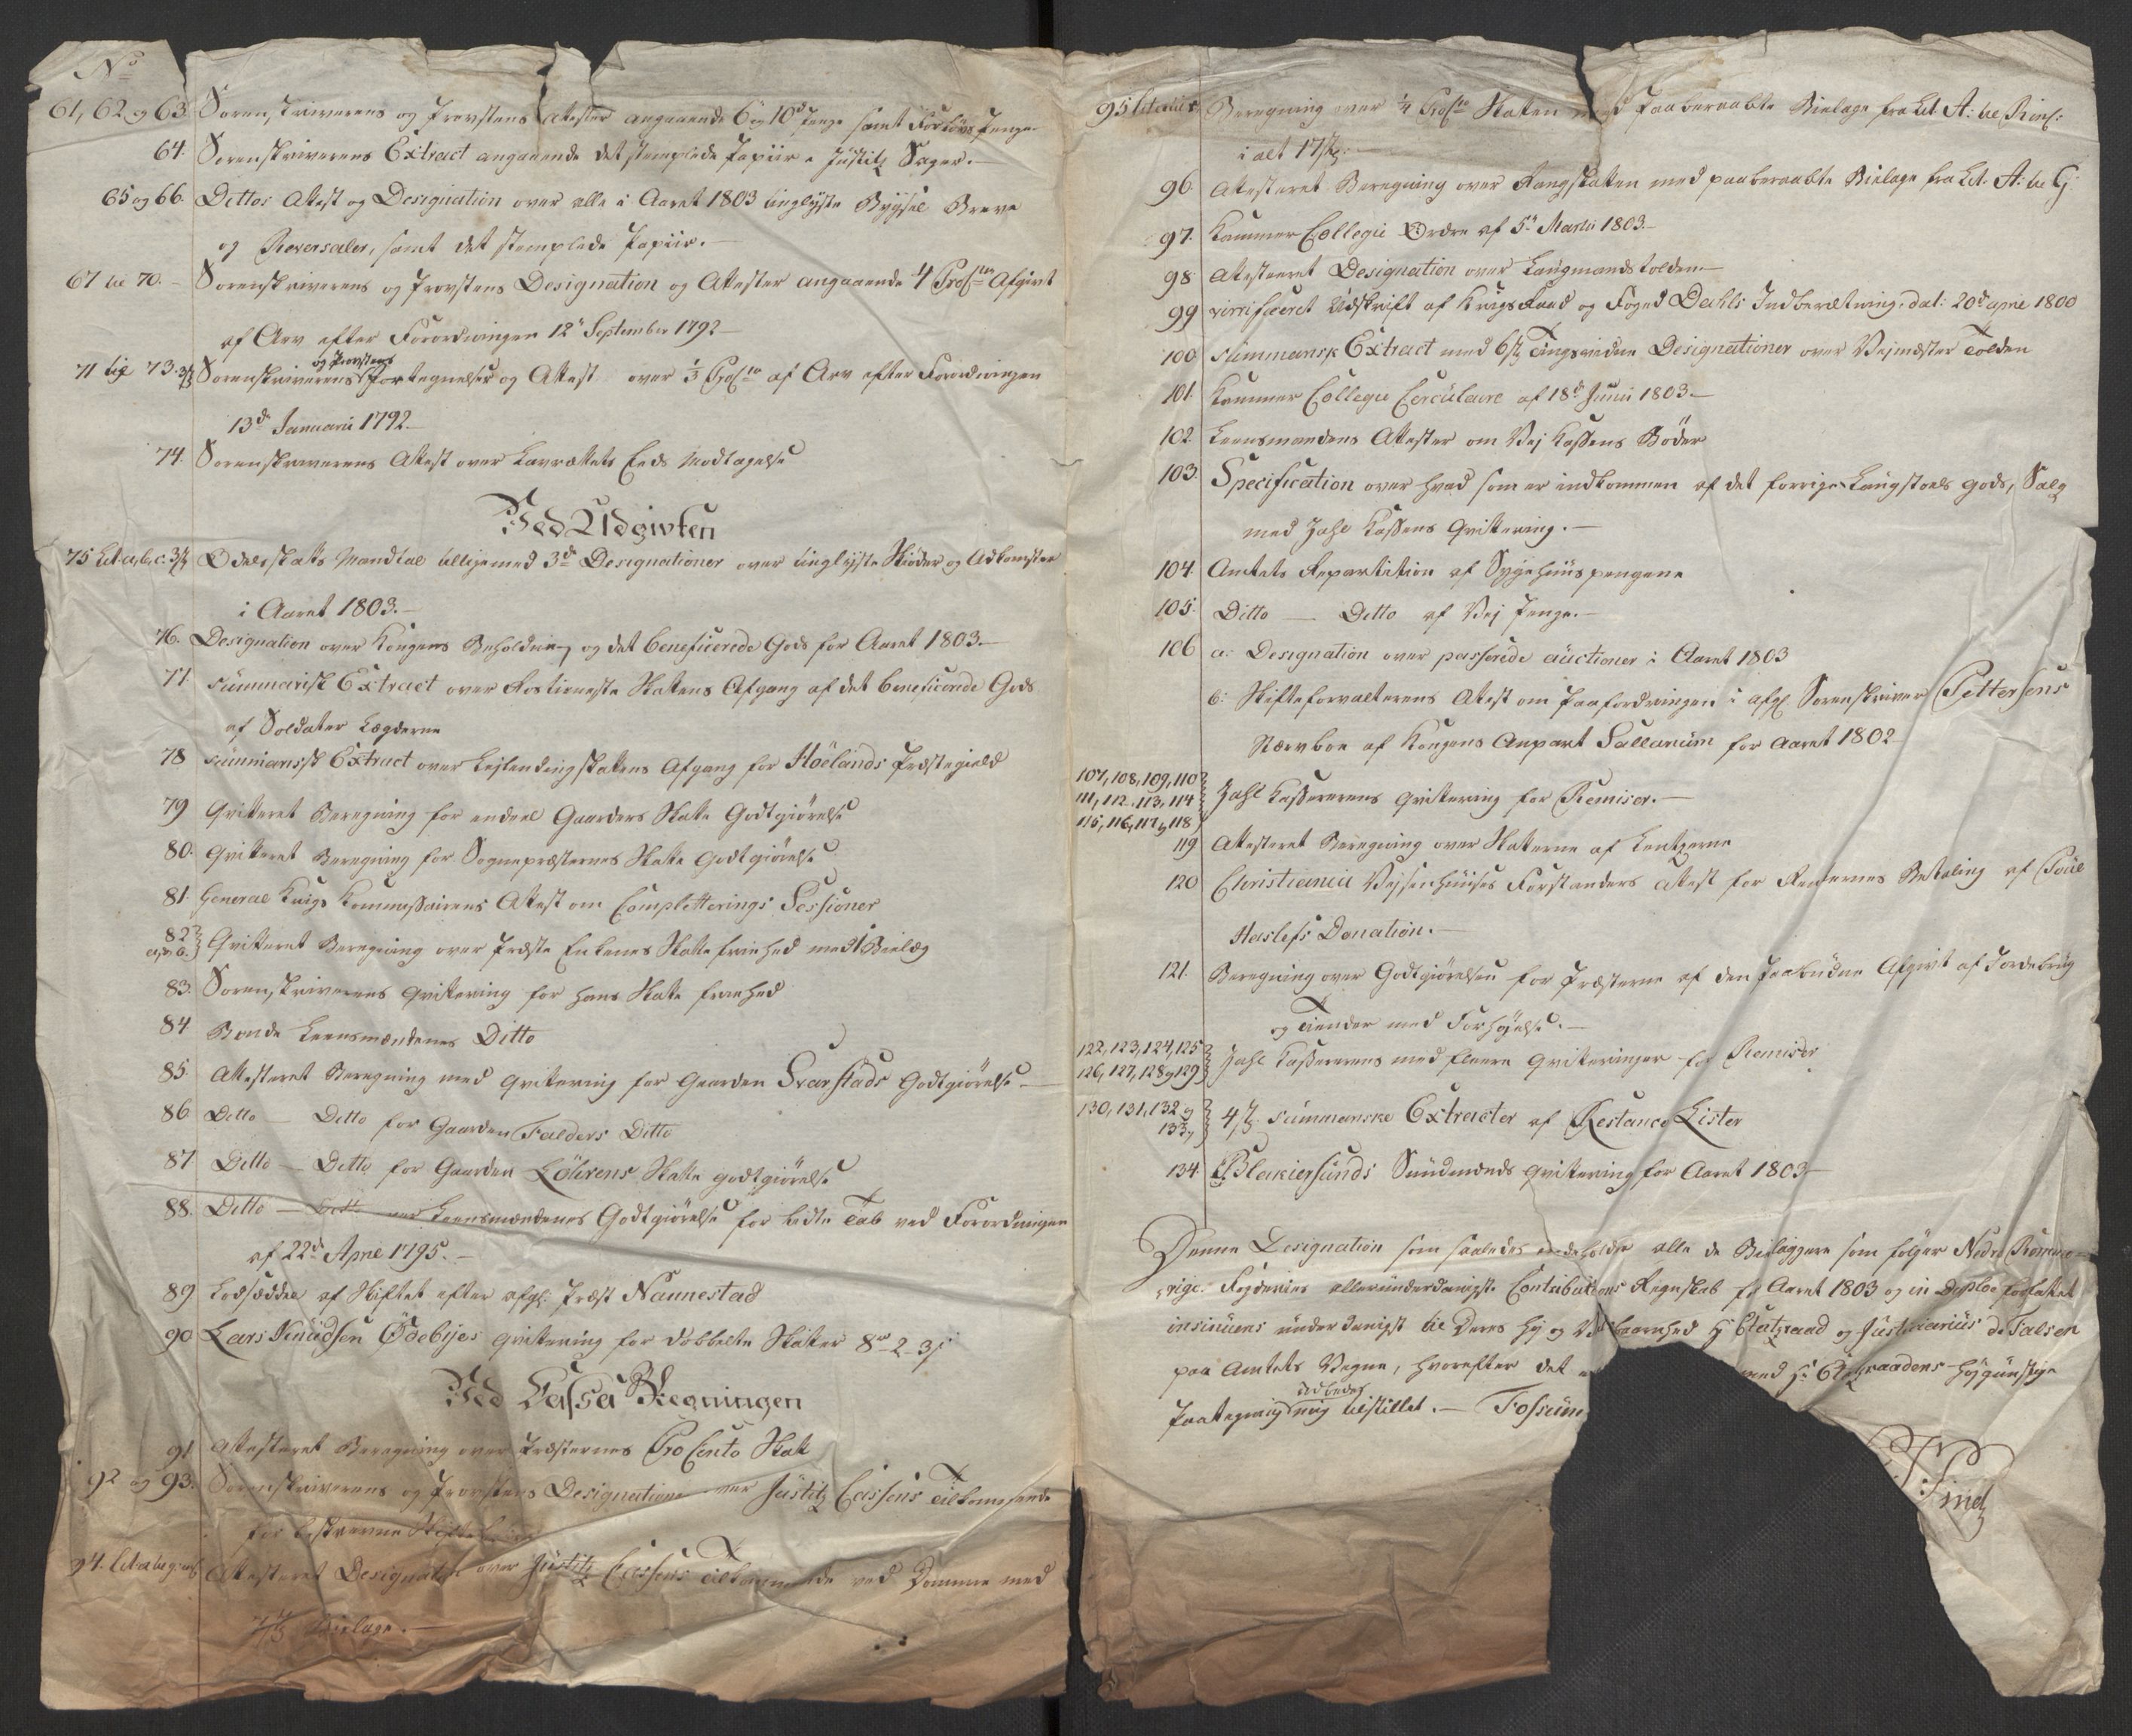 No
61, 62 og 63. Sorenskriverens og Provstens Atester angaaende 6te og 10de Penge samt Forlovs Penge
64. Sorenskriverens Extract angaaende det stemplede Papiir i Justitz Sager. —
65 og 66. Dittos Attest og Designation over alle i Aaret 1803 tinglyste Bygsel Breve
og Reverseler, samt det stemplede Papiir. —
67 til 70. — Sorenskriverens og Provstens Designation og Attester angaaende 4 ProCto Afgivt
af Arv efter Forordningen 12te September 1792 —
71 til 73. Sorenskriverens og Provstens Fortegnelser og Attest over ½ ProCto af Arv efter Forordningen
13de Januarii 1792. —
74. Sorenskriverens Attest over Lavrættets Eeds Modtagelse
Ved Udgivten
75 Lit. a, b, c. Odelsskatts Mandtal tilligemed 3de Designationer over tinglyste Skiøder og Adkomster
i Aaret 1803. —
76. Designation over Kongens Beholdne og det beneficerede Gods for Aaret 1803. —
77. Summarisk Extract over Rostieneste Skattens Afgang af det beneficerede Gods
af Soldater Lægderne
78 Summarisk Extract over Lejlendingskattens Afgang for Hølands Præstegield
79 Qvitteret Beregning for endeel Gaarders Skatte Godtgiørelse
80. Qvitteret Beregning for Sognepræsternes Skatte Godtgiørelse
81. General Krigs Kommissairens Attest om Completterings Sessioner
82 a, og b. Qvitteret Beregning over Præste Enkenes Skatte friehed med 1 Bielag
83. Sorenskriverens Qvittering for hans Skatte friehed
84 Bonde Leensmændenes Ditto
85. Attesteret Beregning med Qvittering for Gaarden Svarstads Godtgiørelse —
86 Ditto — Ditto for Gaarden Falders Ditto
87 Ditto — Ditto for Gaarden Løhrens Skatte godtgiørelse
88. Ditto — Ditto over Leensmændenes Godtgiørelse for lidte Tab ved Forordningen
af 22de April 1795. —
89 Lodsæddel af Skiftet efter afgl. Præst Nannestad
90 Lars Knudsen Ødebyes Qvittering for dobbelte Skatter 8 rd 2 – 3 s
Ved Cassa Regningen
91 Attesteret Beregning over Præsternes ProCento Skatt
92 og 93. Sorenskriverens og Provstens Designation over Justitz Cassens Tilkommende
for beskrevne Skifte
94. Lit. a til g. incl. Attesteret Designation over Justitz Cassens Tilkommende ved Domme med
7 st. Bielage. —
95 Beregning over ¼ ProCto Skatten med paaberaabte Bielage fra Lit. A: til R incl:
i alt 17 st. —
96. Attesteret Beregning over Rangskatten med paaberaabte Bielage fra Lit. A: til G
97. Kammer Collegii Ordre af 5te Martii 1803. —
98 Attesteeret Designation over Laugmandstolden —
99 virificeret Udskrift af Krigs Raad og Foged Dahls Indberætning, dat: 20de april 1800
100 summarisk Extract med 6 st. Tingsvidne Designationer over Vejmester Tolden
101. Kammer Collegii Circulaire af 18de Junii 1803. —
102. Leensmandens Attester om Vej Kassens Bøder
103. Specification over hvad som er indkommen af det forrige Laugstoels gods, Salg
med Zahl Kassens Qvittering. —
104 Amtets Repartition af Sygehuuspengene
105. Ditto — Ditto af Vej Penge. —
106 a. Designation over passerede auctioner i Aaret 1803
b. Skifteforvalterens Atest om Paafordringen i afgl. Sorenskriver Pettersens
Stervboe af Kongens Anpart Sallarium for Aaret 1802
107, 108, 109, 110
111, 112, 113, 114 Zahl Kassererens Qvittering for Remiser. —
115, 116, 117 og 118
119 Attesteret Beregning over Skatterne af Lentzerne
120 Christiania Vejsenhuuses Forstanders Attest for Renternes Betaling af Poul
Haslefs Donation. —
121. Beregning over Godtgiørelsen for Præsterne af den paabudne Afgivt af Jordebrug
og Tiender med Forhøjelse. —
122, 123, 124, 125
126, 127, 128 og 129 Zahl Kassererens med fleere Qvitteringer for Remiser
130, 131, 132 og 133 4 st. summariske Extracter af Restance Lister
134. Blakiersunds Sundmands Qvittering for Aaret 1803 —
Denne Designation som saaledes indeholder alle de Bielaggere som følger Nedre Rømme-
rige Fogderies allerunderdanigste Contributions Regnskab for Aaret 1803 og in duplo forfattet
insinueres underdanigst til Deres Høj og Velbaarenhed Hr Etatzraad og Justitiarius de Falsen
paa Amtets Vegne, hvorefter det med Hr Etatzraadens højgunstige
Paategning udbedes mig tilstillet. — Fossum
Lind